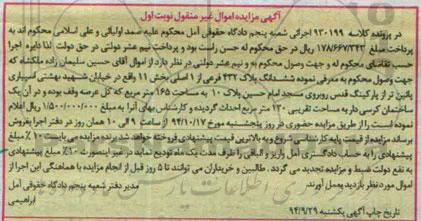 آگهی مزایده اموال غیر منقول نوبت اول
در پرونده کلاسه ۹۳۰۱۹۹ اجرائی شعبه پنجم دادگاه حقوقی آمل محکوم علیه صمد اولیائی و علی اسلامی محکوم اند به
پرداخت مبلغ ۱۷۸/۶۶۷/۳۴۳ ریال در حق محکوم له حسن راست بود و پرداخت نیم عشر دولتی در حق دولت لذا دایره اجرا
حسب تقاضای محکوم له و جهت وصول محکوم به و نیم عشر دولتی در نظر دارد از اموال آقای حسین سلیمان زاده ملکشاه که
جهت وصول محکوم به معرفی نموده ششدانگ پلاک ۴۳۲ فرعی از ۱ اصلی بخش ۱۱ واقع در خیابان شهید بهشتی اسپیاری
پائین تر از پارکینگ قدس روبروی مسجد امام حسین پلاک ۱۰ به مساحت ۱۶۵ متر مربع که کل عرصه وقف بوده و در آن یک
ساختمان کرسی دار به مساحت تقریبی ۱۳۰ متر مربع احداث گردیده و کارشناس بهای آنرا به مبلغ ۱/۵۰۰/۰۰۰/۰۰۰ ریال اعلام
نموده است را از طریق مزایده حضوری در روز پنجشنبه مورخ ۹۴/۱۰/۱۷ از ساعت ۹ الی ۱۰ همان روز در دفتر اجرا بفروش
برساند مزایده از قیمت پایه کارشناسی شروع و به بالاترین قیمت پیشنهادی فروخته خواهد شد برنده مزایده می بایست ۱۰٪ مبلغ
پیشنهادی را به حساب دادگستری آمل واریز و الباقی را ظرف مدت یک ماه تودیع نماید در غیر اینصورت ۱۰٪ مبلغ پیشنهادی
به نفع دولت ضبط و مزایده تجدید می گردد. طالبین و خریداران می توانند ۵ روز قبل از انجام مزایده با هماهنگی این اجرا از
اموال مورد نظر بازدید بعمل آورند.
مدیر دفتر شعبه پنجم دادگاه حقوقی آمل
ابراهیمی
تاریخ چاپ آگهی یکشنبه ۹۴/۹/۲۹